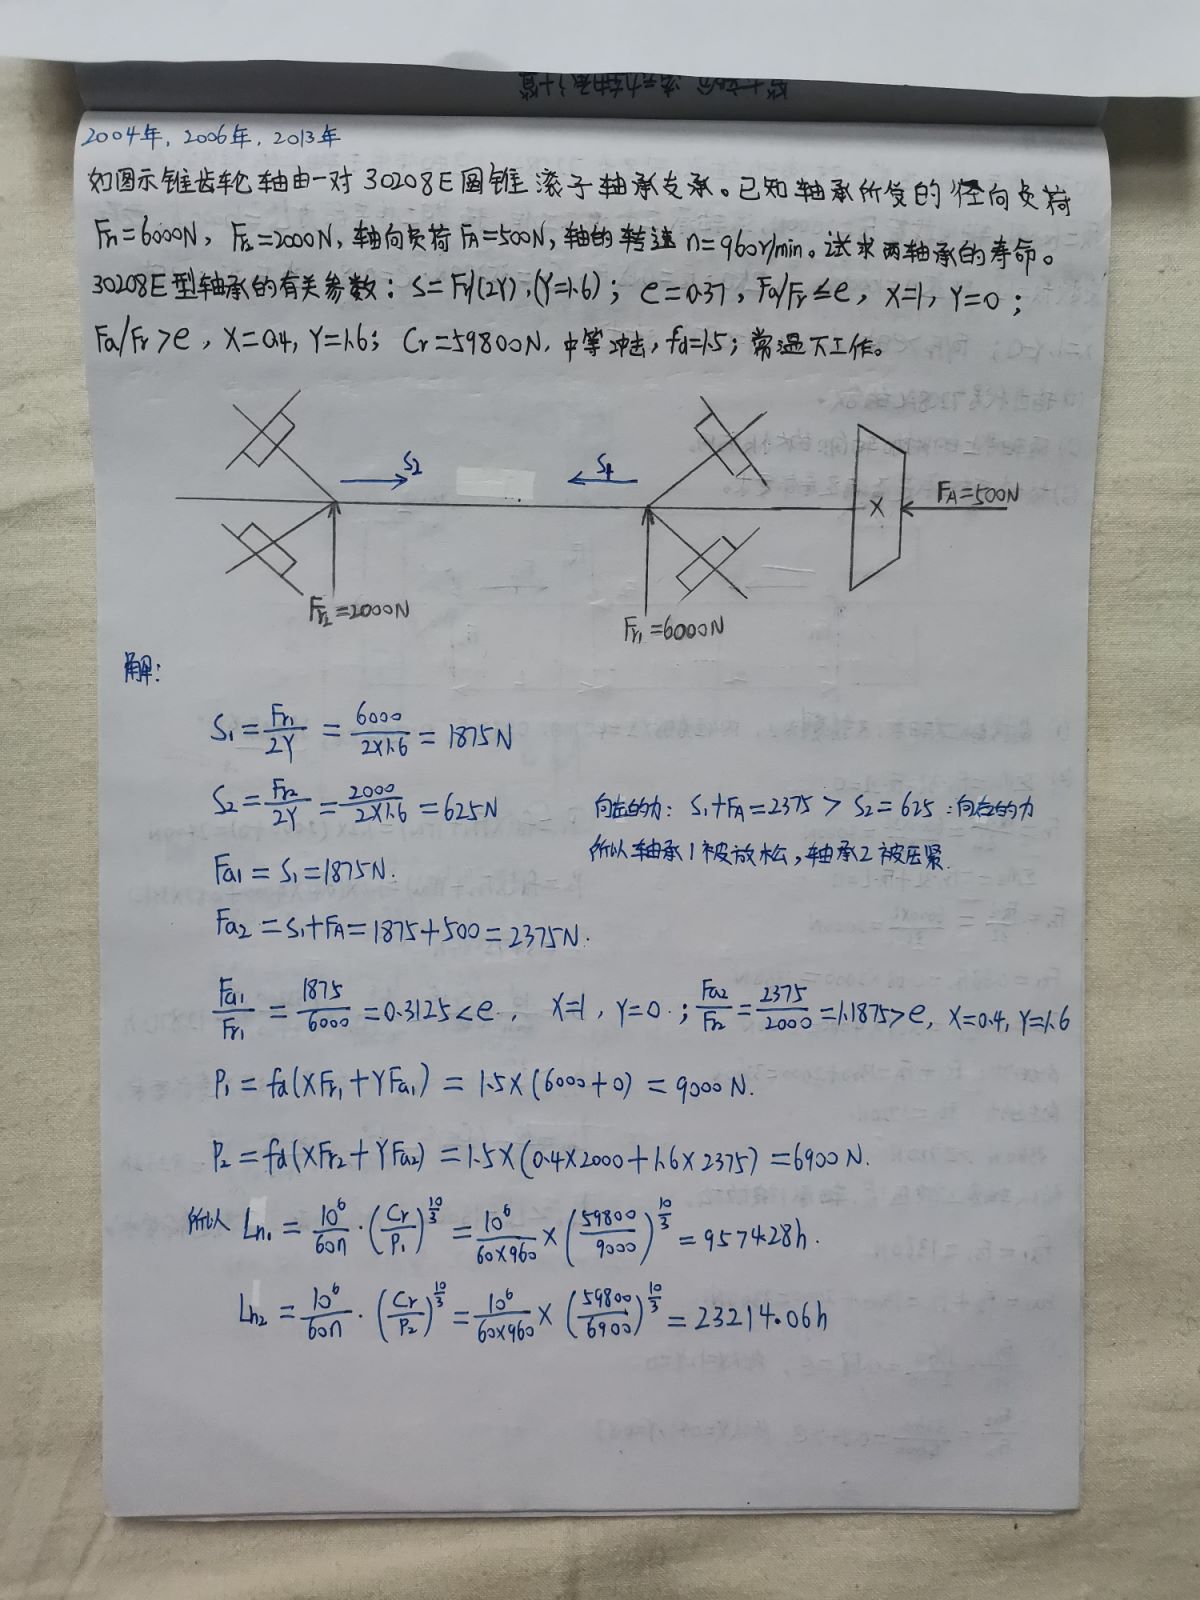 2004年，2006年，2013年
如图示锥齿轮轴由一对30208E圆锥滚子轴承支承。已知轴承所受的径向负荷
Fr1=6000N，Fr2=2000N，轴向负荷FA=500N，轴的转速n=960r/min。试求两轴承的寿命。
30208E型轴承的有关参数：S=Fr/(2Y)，(Y=1.6)；e=0.37，Fa/Fr≤e，X=1，Y=0；
Fa/Fr>e，X=0.4，Y=1.6；Cr=59800N，中等冲击，fd=1.5；常温下工作。
S2
S1
FA=500N
X
Fr2=2000N
Fr1=6000N
解：
S1=Fr1/2Y=6000/2×1.6=1875N
S2=Fr2/2Y=2000/2×1.6=625N
向左的力：S1+FA=2375>S2=625：向右的力
所以轴承1被放松，轴承2被压紧.
Fa1=S1=1875N.
Fa2=S1+FA=1875+500=2375N.
Fa1/Fr1=1875/6000=0.3125<e，X=1，Y=0.；Fa2/Fr2=2375/2000=1.1875>e，X=0.4，Y=1.6
P1=fd(XFr1+YFa1)=1.5×(6000+0)=9000N.
P2=fd(XFr2+YFa2)=1.5×(0.4×2000+1.6×2375)=6900N.
所以 Lh1=10^6/60n·(Cr/P1)^10/3=10^6/60×960×(59800/9000)^10/3=9574.28h.
Lh2=10^6/60n·(Cr/P2)^10/3=10^6/60×960×(59800/6900)^10/3=23214.06h